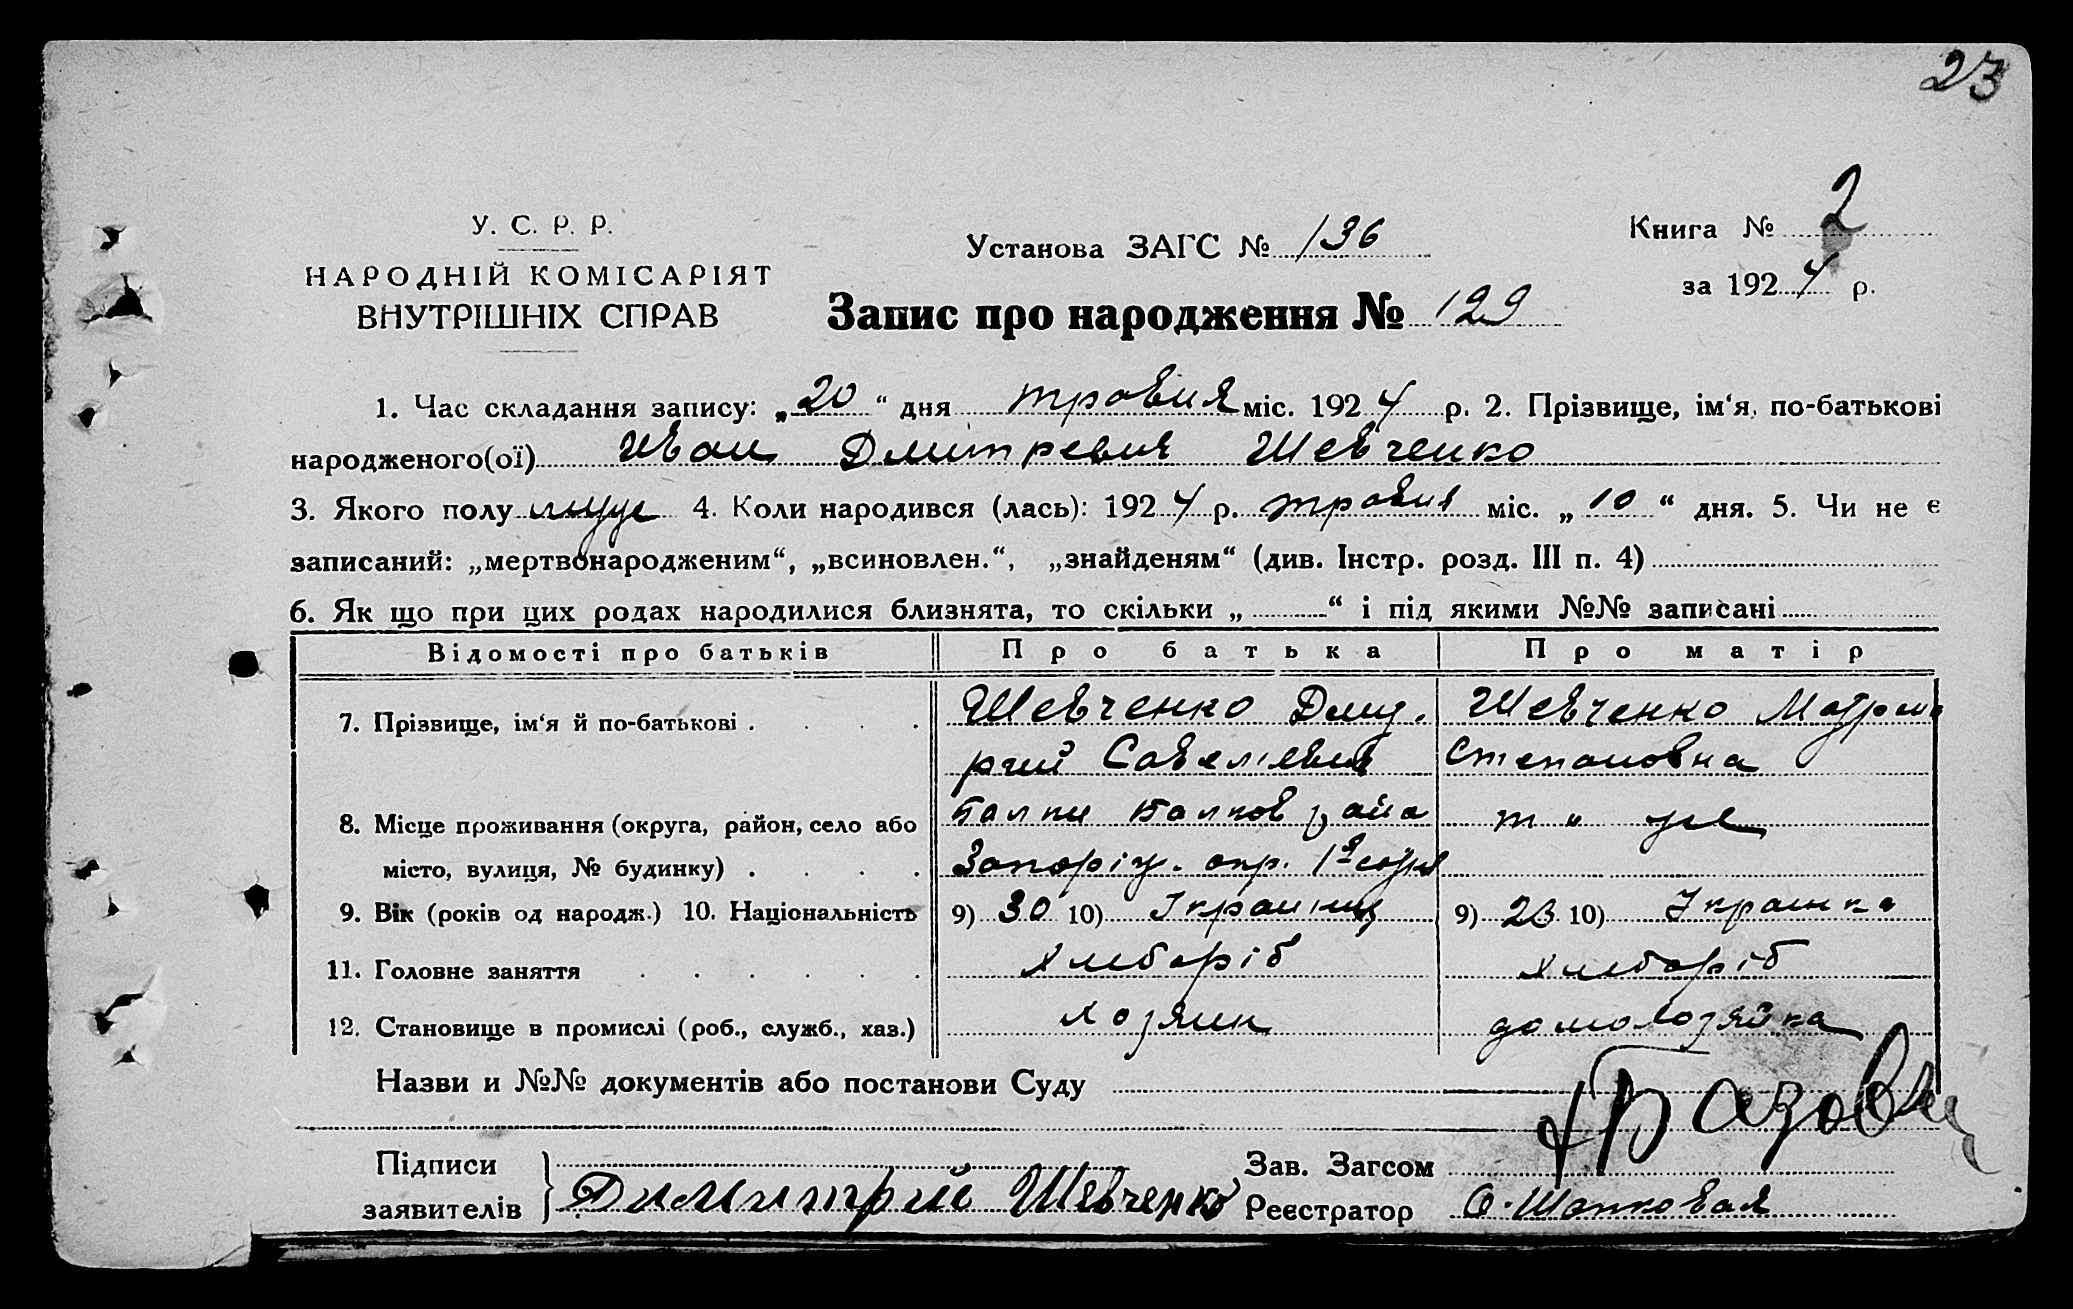 23
У. С. Р. Р.
НАРОДНІЙ КОМІСАРІЯТ
ВНУТРІШНІХ СПРАВ
Установа ЗАГС № 136
Запис про народження № 129
Книга № 2
за 1924 р.
1. Час складання запису: „20“ дня травня міс. 1924 р. 2. Прізвище, ім‘я, по-батькові
народженого(ої) Иван Дмитревич Шевченко
3. Якого полу муж 4. Коли народився (лась): 1924 р. травня міс. „10“ дня. 5. Чи не є
записаний: „мертвонародженим“, „всиновлен.“, „знайденям“ (див. Інстр. розд. III п. 4)
6. Як що при цих родах народилися близнята, то скільки „ “ і під якими №№ записані
Відомості про батьків Про батька Про матір
7. Прізвище, ім‘я й по-батькові Шевченко Дмит- Шевченко Матрона
рий Савелієвич Степановна
8. Місце проживання (округа, район, село або Балки Балков района т у же
місто, вулиця, № будинку) Запоріж. окр. 1
9. Вік (років од народж.) 10. Національність 9) 30 10) Українець 9) 23 10) Українка
11. Головне заняття Хлебороб Хлебороб
12. Становище в промислі (роб., служб., хаз.) хозяин домохозяйка
Назви и №№ документів або постанови Суду
Підписи
заявителів Димитрий Шевченко
Зав. Загсом
Реєстратор О. Шапковая